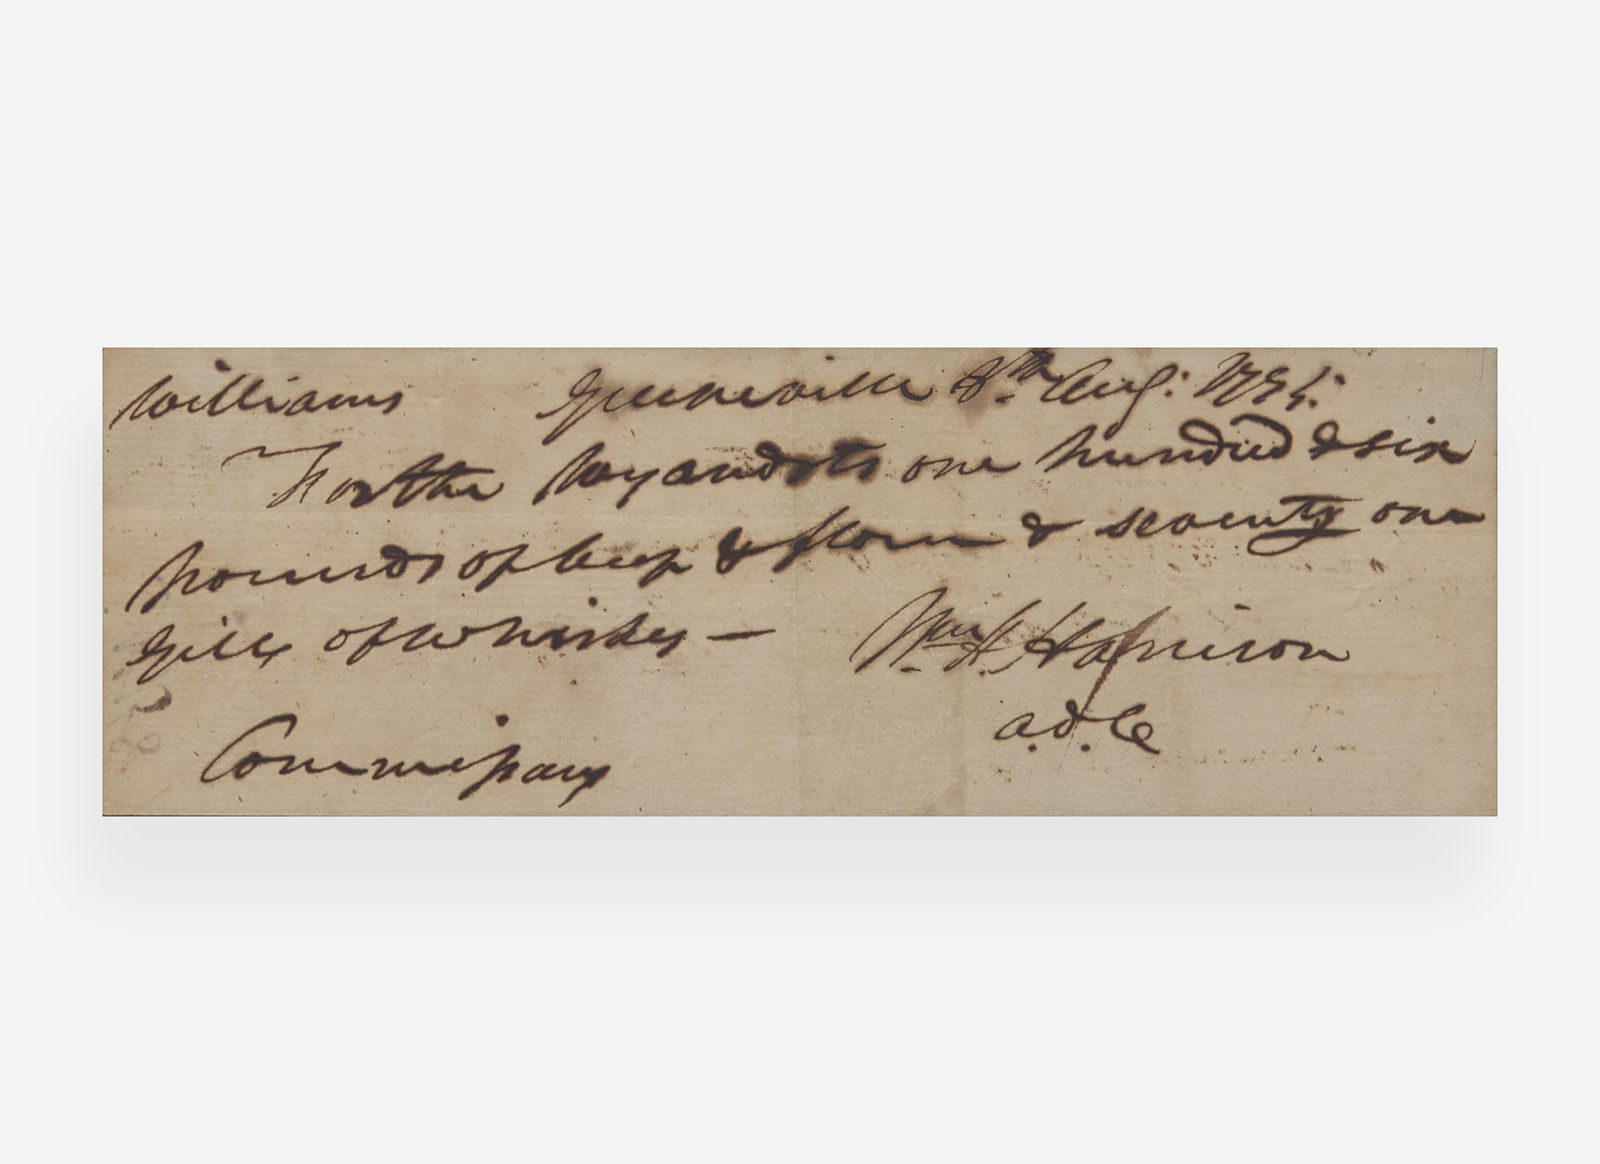 Williams Greeneville 8th Aug: 1795:
For the Wyandots one hundred & six
pounds of beef & flour & seventy one
gills of Whiskey —
Wm. H. Harrison
a.d.C
Commissary